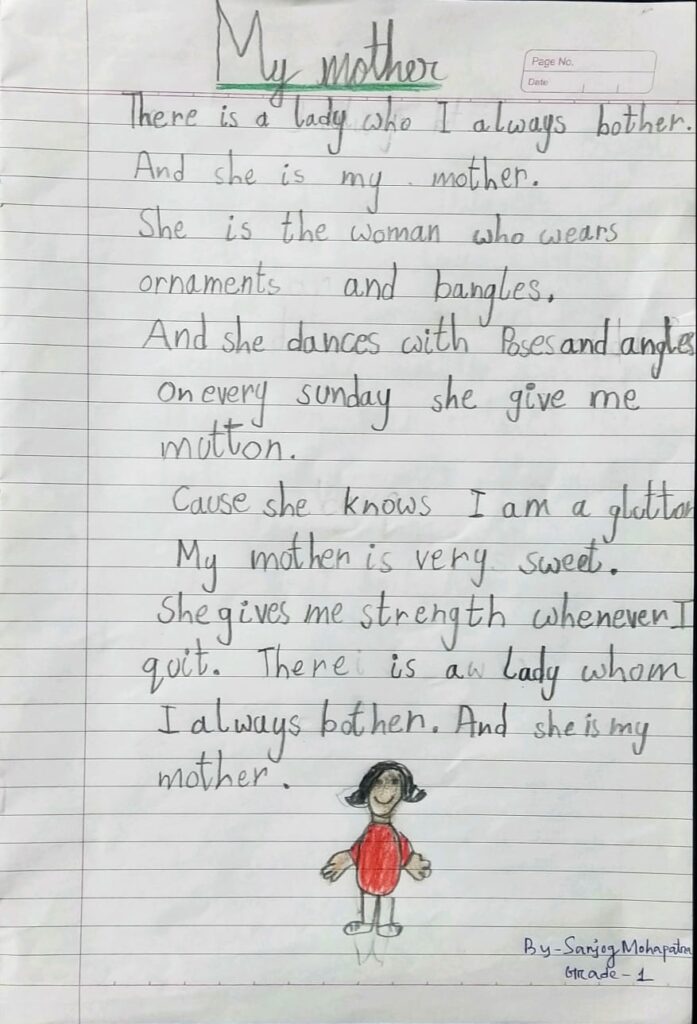 My mother
Page No.
Date
There is a lady who I always bother.
And she is my . mother.
She is the woman who wears
ornaments and bangles.
And she dances with Poses and angles
On every sunday she give me
mutton.
Cause she knows I am a glutton
My mother is very sweet.
She gives me strength whenever I
quit. There is a lady whom
I always bother. And she is my
mother.
By-Sanjog Mohapatra
Grade-1